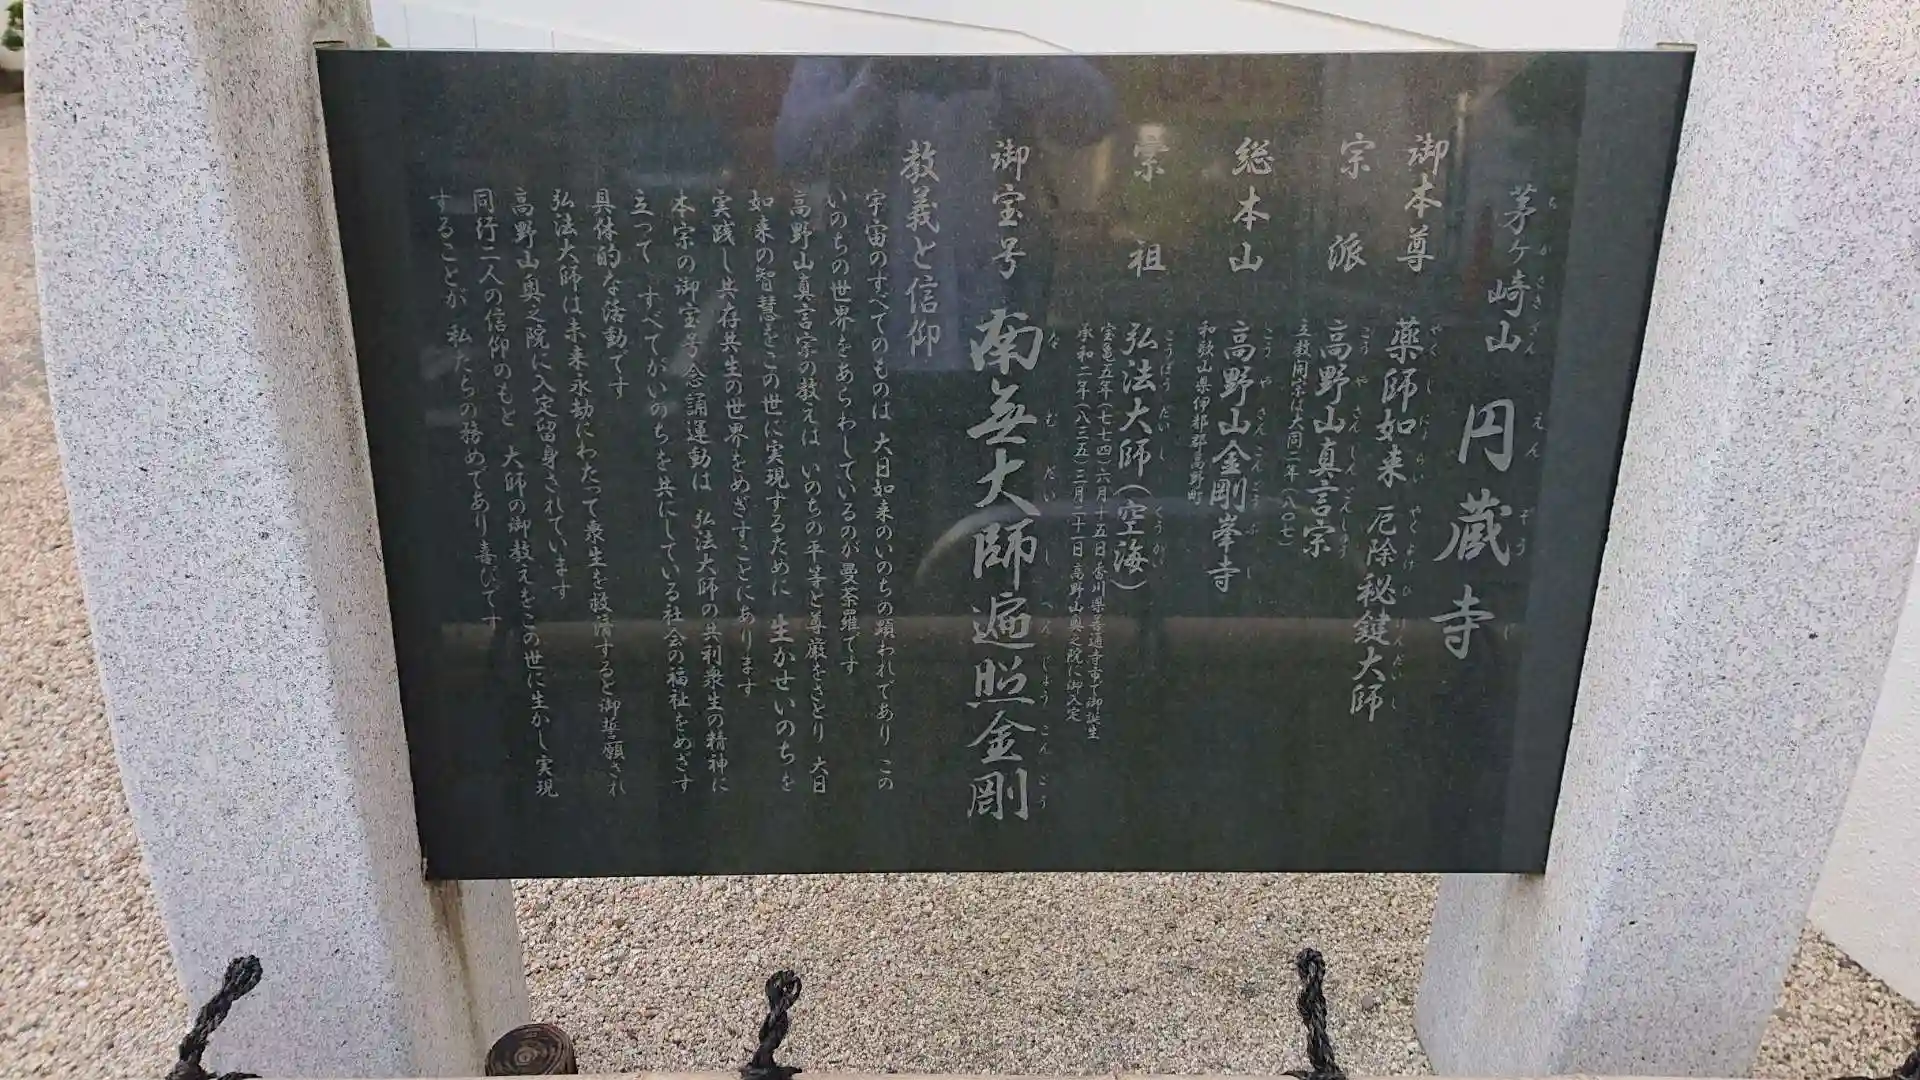 茅ヶ崎山 円蔵寺
ちがさきざん えんぞうじ
御本尊 薬師如来 厄除秘鍵大師
やくしにょらい やくよけひけんだいし
宗派 高野山真言宗
こうやさんしんごんしゅう
立教開宗は大同二年(八〇七)
総本山 高野山金剛峯寺
こうやさんこんごうぶじ
和歌山県伊都郡高野町
宗祖 弘法大師(空海)
こうぼうだいし くうかい
宝亀五年(七七四)六月十五日 香川県善通寺市で御誕生
承和二年(八三五)三月二十一日 高野山奥之院に御入定
御宝号 南無大師遍照金剛
なむだいしへんじょうこんごう
教義と信仰
宇宙のすべてのものは 大日如来のいのちの顕われであり この
いのちの世界をあらわしているのが曼荼羅です
高野山真言宗の教えは いのちの平等と尊厳をさとり 大日
如来の智慧をこの世に実現するために 生かせいのちを
実践し共存共生の世界をめざすことにあります
本宗の御宝号念誦運動は 弘法大師の共利衆生の精神に
立って すべてがいのちを共にしている社会の福祉をめざす
具体的な活動です
弘法大師は未来永劫にわたって衆生を救済すると御誓願され
高野山奥之院に入定留身されています
同行二人の信仰のもと 大師の御教えをこの世に生かし実現
することが 私たちの務めであり喜びです